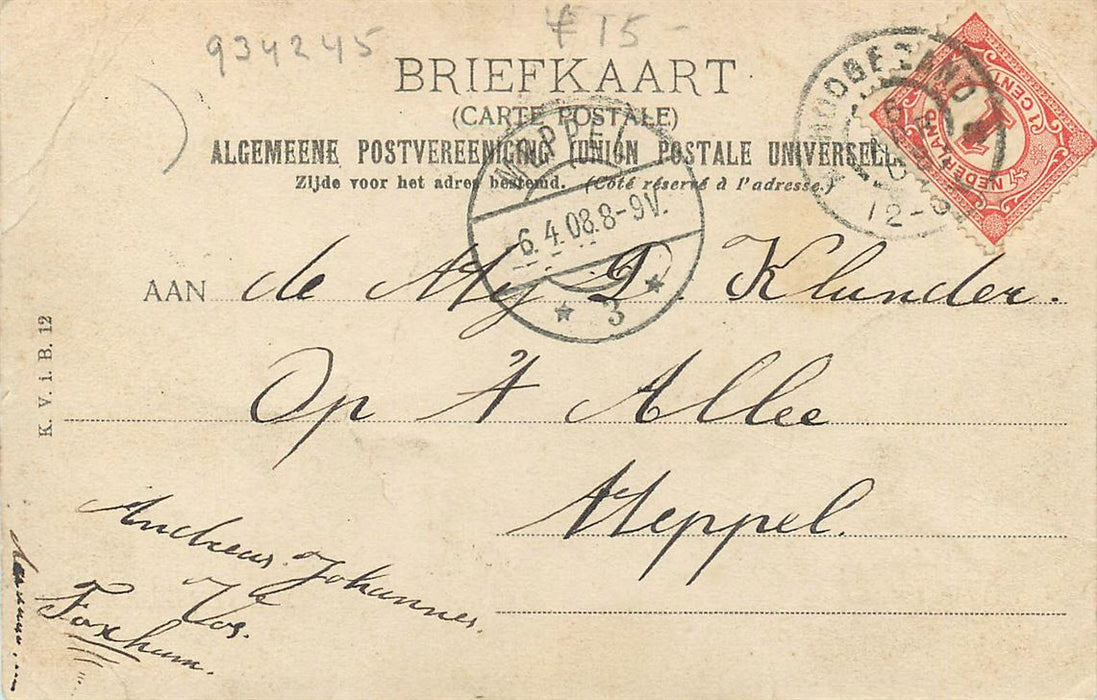 934245
f 15 -
BRIEFKAART
(CARTE POSTALE)
ALGEMEENE POSTVEREENIGING (UNION POSTALE UNIVERSELLE
Zijde voor het adres bestemd. (Côté réservé à l'adresse)
MEPPEL
6.4.08.8-9V.
3
HOOGEZAND
12-3
NEDERLAND
1 CENT
1
AAN de Mej D. Klunder.
Op 't Allee
Meppel.
K. V. i. B. 12
Andreus Johannes
Vos.
Foxham.